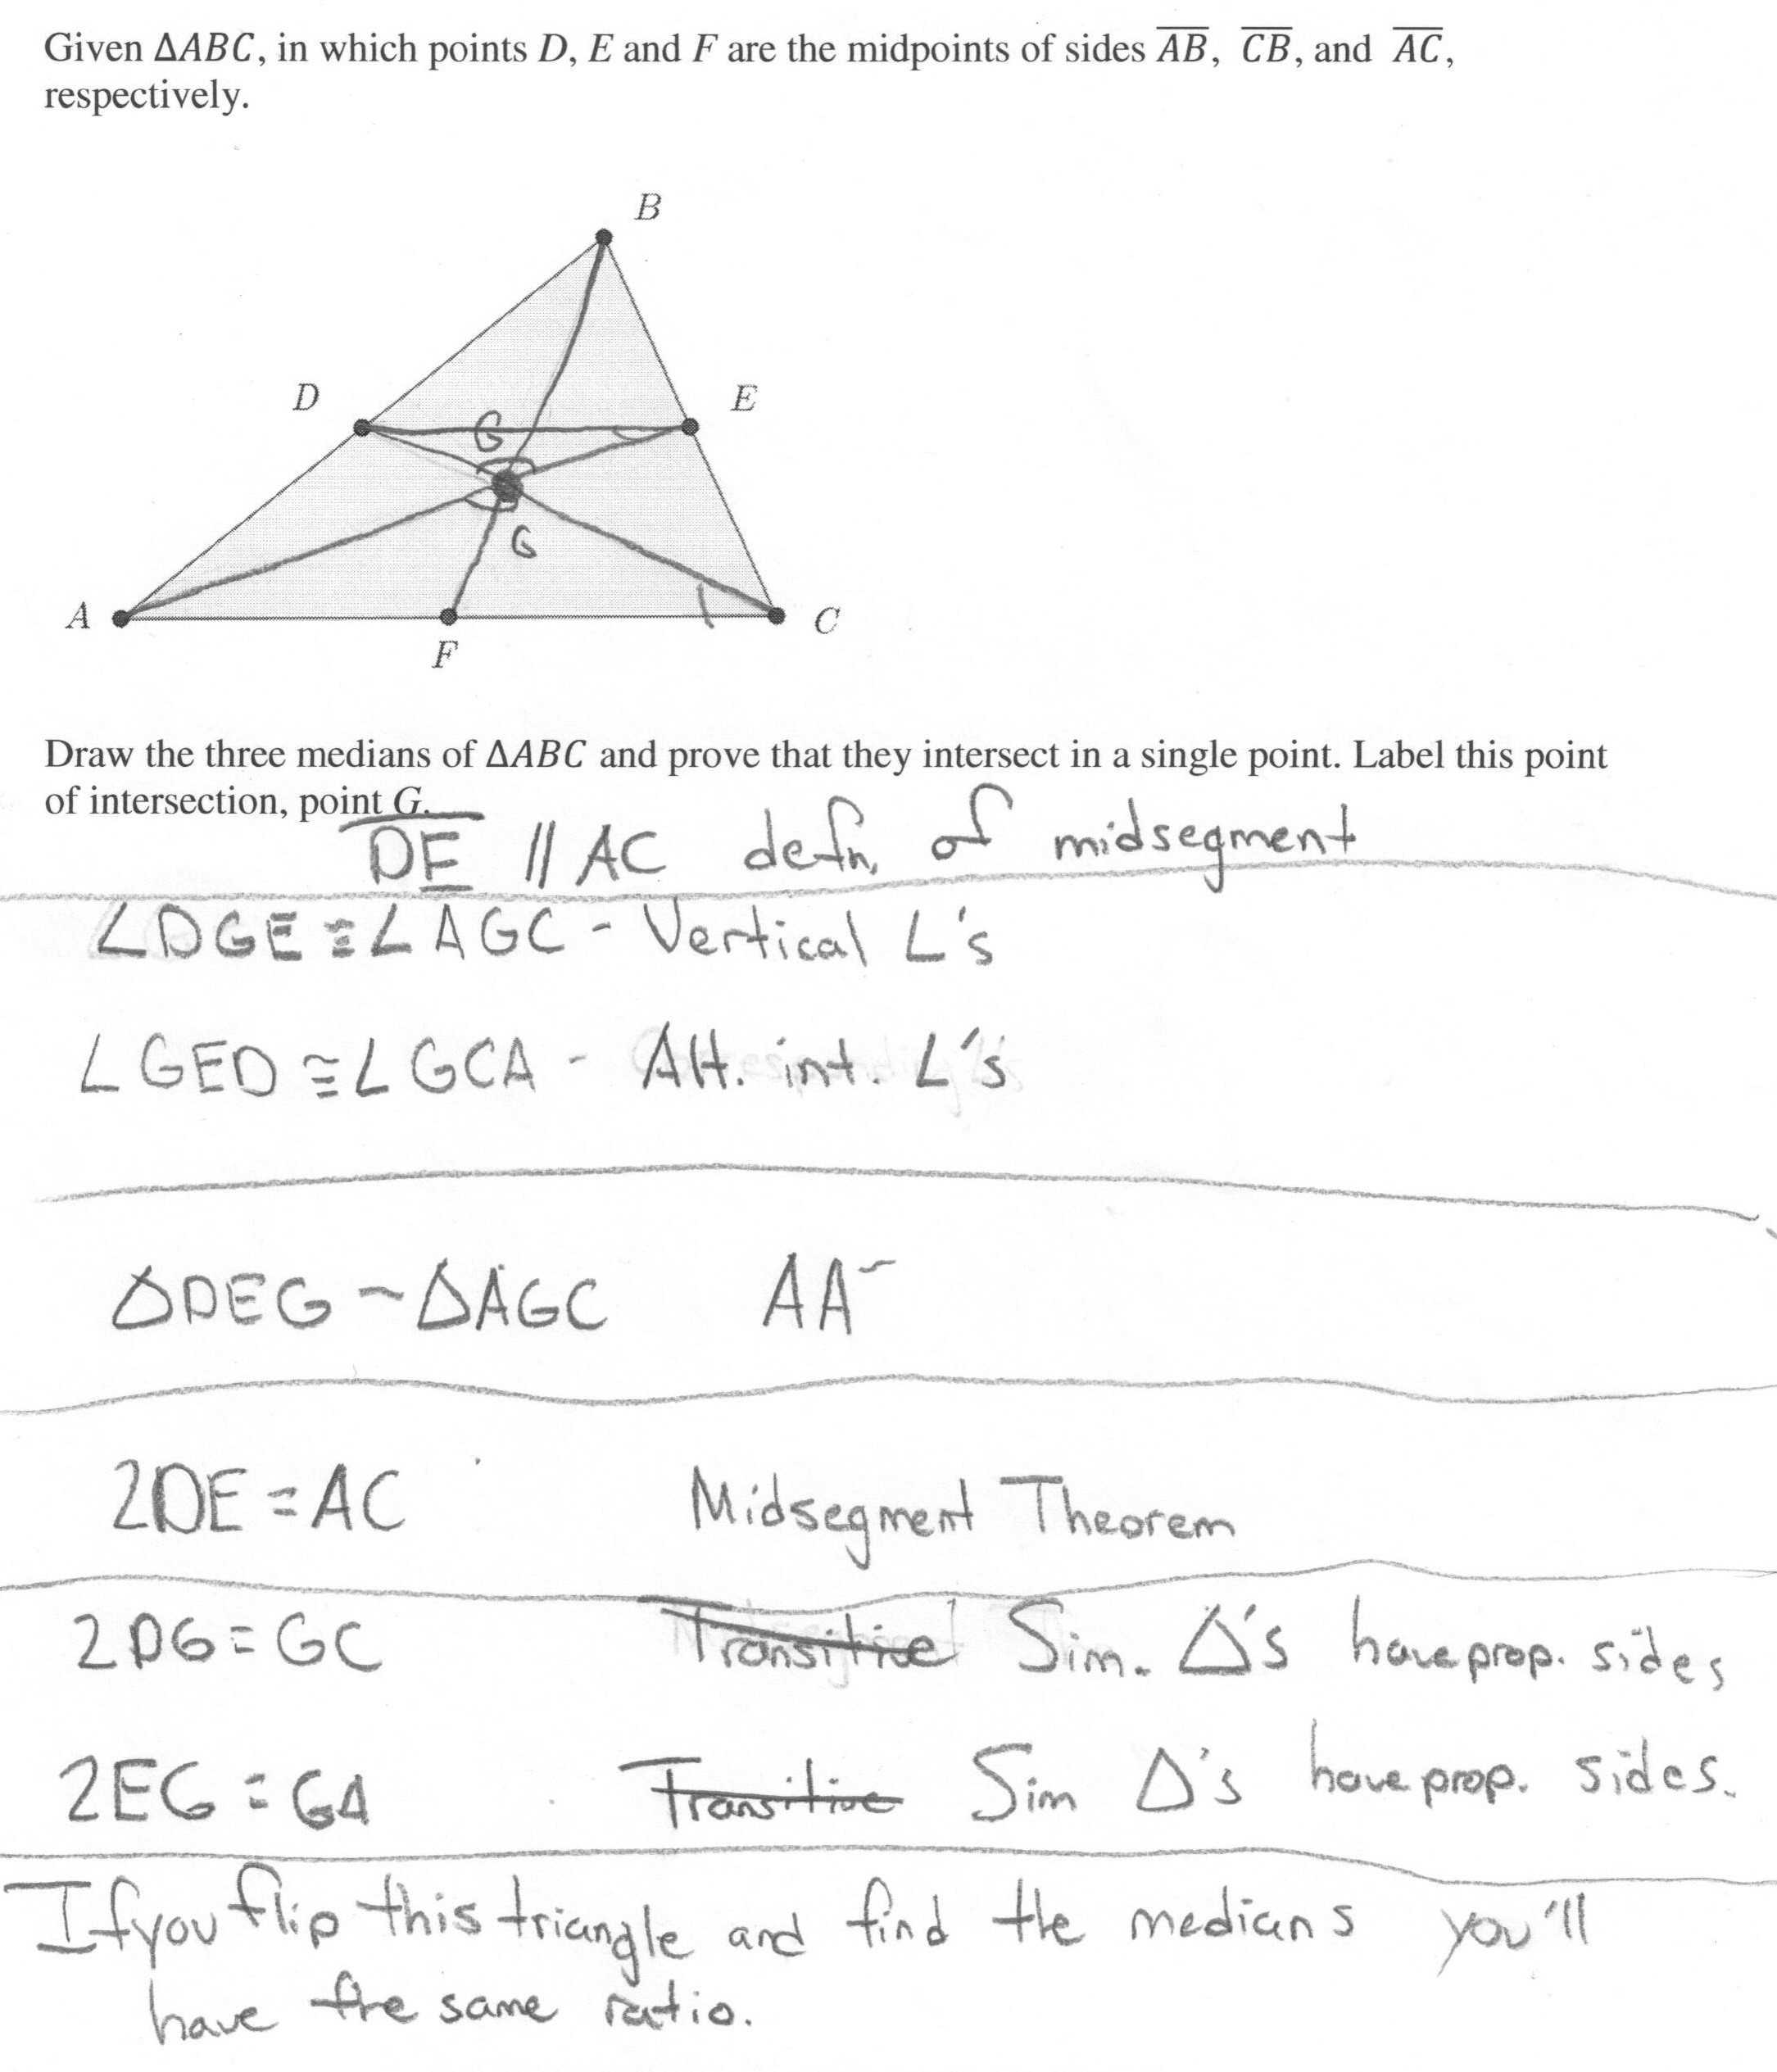 Given ΔABC, in which points D, E and F are the midpoints of sides A̅B̅, C̅B̅, and A̅C̅,
respectively.
B
D
E
G
G
A
F
C
Draw the three medians of ΔABC and prove that they intersect in a single point. Label this point
of intersection, point G.
DE // AC defn. of midsegment
∠DGE ≅ ∠AGC - Vertical ∠'s
∠GED ≅ ∠GCA - Alt. int. ∠'s
ΔDEG ~ ΔAGC AA~
2DE = AC Midsegment Theorem
2DG = GC Transitive Sim. Δ's have prop. sides
2EG = GA Transitive Sim Δ's have prop. sides.
If you flip this triangle and find the medians you'll
have the same ratio.